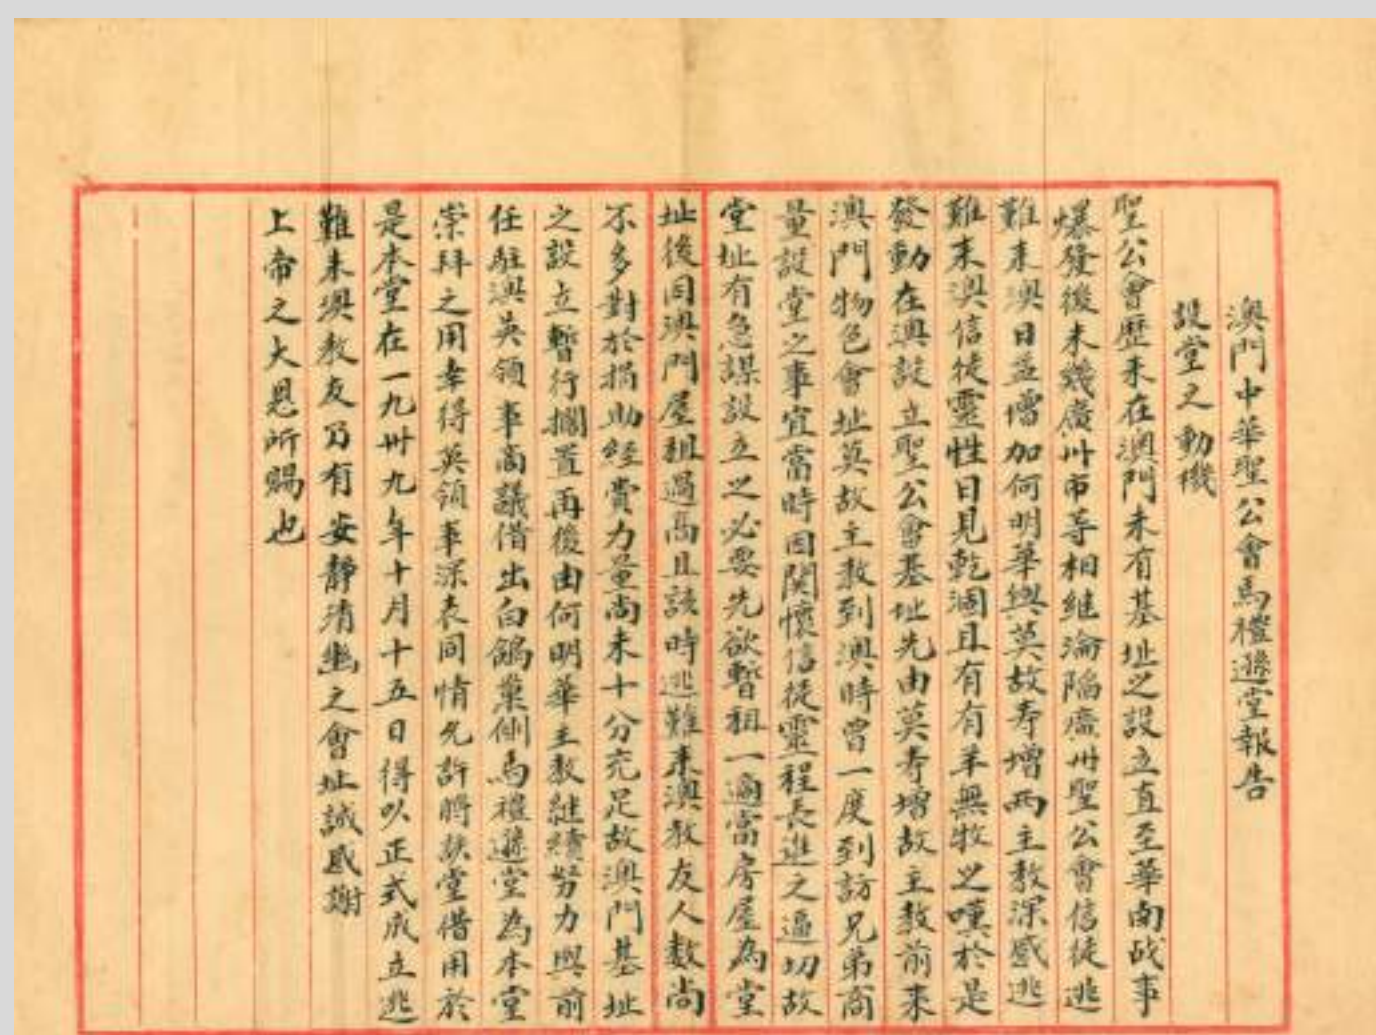 澳門中華聖公會馬禮遜堂報告
設堂之動機
聖公會歷來在澳門未有基址之設立直至華南战事
爆發後未幾廣州市等相継淪陷廣州聖公會信徒逃
難來澳日益增加何明華與莫故寿增兩主教深感逃
難來澳信徒靈性日見乾涸且有有羊無牧之嘆於是
發動在澳設立聖公會基址先由莫寿增故主教前來
澳門物色會址莫故主教到澳時曾一度到訪兄弟商
量設堂之事宜當時因関懷信徒靈程長進之逼切故
堂址有急謀設立之必要先欲暫租一適當房屋為堂
址後因澳門屋租過高且該時逃難來澳教友人数尚
不多對於捐助經費力量尚未十分充足故澳門基址
之設立暫行擱置再後由何明華主教継續努力與前
任駐澳英領事商議借出白鴿巢側馬禮遜堂為本堂
崇拜之用幸得英領事深表同情允許將該堂借用於
是本堂在一九卅九年十月十五日得以正式成立逃
難來澳教友乃有安靜清幽之會址誠感謝
上帝之大恩所賜也